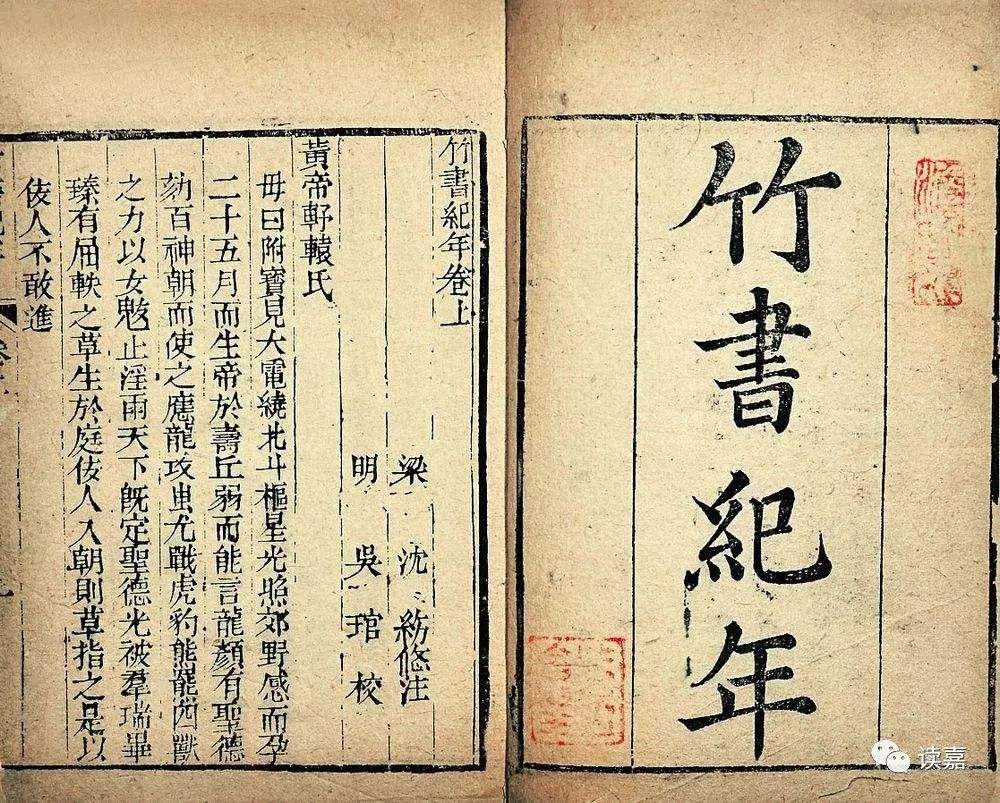 竹書紀年
竹書紀年卷上
梁 沈 注
明 吳 琯 校
黃帝軒轅氏
母曰附寶見大電繞北斗樞星光照郊野感而孕
二十五月而生帝於壽丘弱而能言龍顏有聖德
劾百神朝而使之應龍攻蚩尤戰虎豹熊羆四獸
之力以女魃止淫雨天下既定聖德光被羣瑞畢
臻有屈軼之草生於庭佞人入朝則草指之是以
佞人不敢進
读嘉